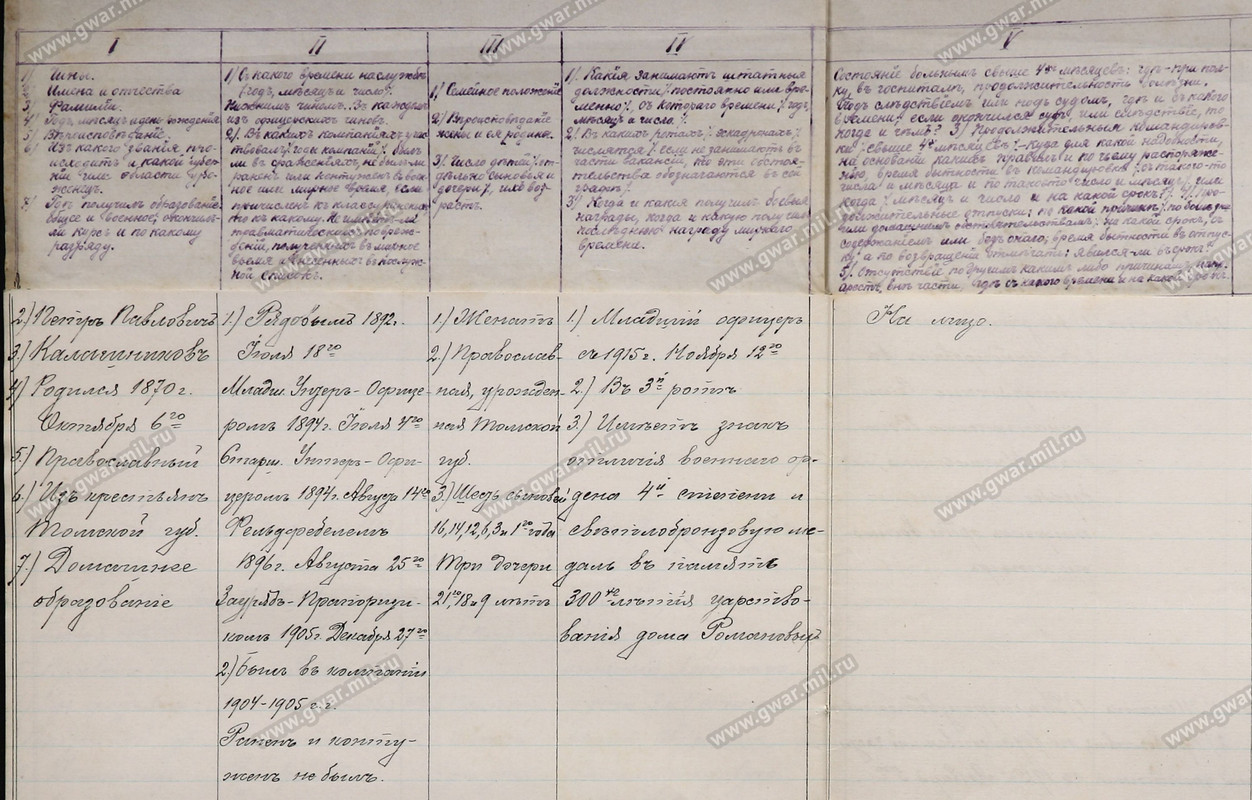 I
1) Чины.
2) Имена и отчества
3) Фамилiи.
4) Годъ, мѣсяцъ и день рожденiя
5) Вѣроисповѣданiе.
6) Изъ какого званiя про-
исходитъ и какой губер-
нiи или области уро-
женецъ.
7) Гдѣ получилъ образованiе
общее и военное, окончилъ-
ли курсъ и по какому
разряду.
II
1) Съ какого времени на службѣ
(годъ, мѣсяцъ и число).
Нижнимъ чиномъ. Въ каждомъ
изъ офицерскихъ чиновъ.
2) Въ какихъ кампанiяхъ участ-
вовалъ, годы кампанiй. Былъ-
ли въ сраженiяхъ, не былъ-ли
раненъ или контуженъ въ воен-
ное или мирное время, если
причисленъ къ классу раненыхъ
то къ какому. Не имѣетъ-ли
травматическихъ поврежде-
нiй, полученныхъ въ мирное
время и внесенныхъ въ послуж-
ной списокъ.
III
1) Семейное положенiе
2) Вѣроисповѣданiе
жены и ея родина.
3) Число дѣтей, от-
дѣльно сыновья и
дочери, ихъ воз-
растъ.
IV
1) Какiя занимаютъ штатныя
должности, постоянно или вре-
менно, съ котораго времени, годъ,
мѣсяцъ и число.
2) Въ какихъ ротахъ, эскадронахъ,
числятся, если не занимаютъ въ
части вакансiи, то эти обстоя-
тельства обозначаются въ сей
графѣ.
3) Когда и какiя получилъ боевыя
награды, когда и какую получилъ
послѣднюю награду мирнаго
времени.
V
Состоянiе больнымъ свыше 4хъ мѣсяцевъ: гдѣ-при пол-
ку, въ госпиталѣ, продолжительность болѣзни.
Подъ слѣдствiемъ или подъ судомъ, гдѣ и съ какого
времени, если окончился судъ, или слѣдствiе, то
когда и чѣмъ. 3) Продолжительныя командиров-
ки свыше 4хъ мѣсяцевъ куда для какой надобности,
на основанiи какихъ правилъ и по чьему распоряже-
нiю, время бытности въ командировкѣ съ такого-то
числа и мѣсяца и по таковое число и мѣсяцъ или
когда, мѣсяцъ и число и на какой срокъ. 4) Про-
должительные отпуски: по какой причинѣ, по болѣзни
или домашнимъ обстоятельствамъ: на какой срокъ, съ
содержанiемъ или безъ онаго, время бытности въ отпус-
ку, а по возвращенiи отмѣчать: явился-ли въ срокъ.
5) Отсутствiе по другимъ какимъ либо причинамъ: напр.
арестъ внѣ части, гдѣ, съ какого времени и на какой срокъ.
2) Петръ Павловичъ
3) Калашниковъ
4) Родился 1870 г.
Октября 6го
5) Православный
6) Изъ крестьянъ
Томской губ.
7) Домашнее
образованiе
1.) Рядовымъ 1892.
Iюля 18го
Младш. Унтеръ-Офице-
ромъ 1894г. Iюля 4го
Старш. Унтеръ-Офи-
церомъ 1894г. Августа 14го
Фельдфебелемъ
1896г. Августа 25го
Заурядъ-Прапорщи-
комъ 1905г. Декабря 27го
2) Былъ въ компанiи
1904-1905 г.г.
Раненъ и конту-
женъ не былъ.
1.) Женатъ
2.) Православ-
ная, урожден-
ная Томской
губ.
3.) Шесть сыновей
16, 14, 12, 6, 3 и 1го года
Три дочери
21го, 18 и 9 лѣтъ
1.) Младшiй офицеръ
съ 1915г. Ноября 12го
2.) Въ 3й ротѣ
3.) Имѣетъ знакъ
отличiя военнаго ор-
дена 4й степени и
свѣтлобронзовую ме-
даль въ память
300хъ лѣтiя царство-
ванiя дома Романовыхъ
На лицо.
www.gwar.mil.ru